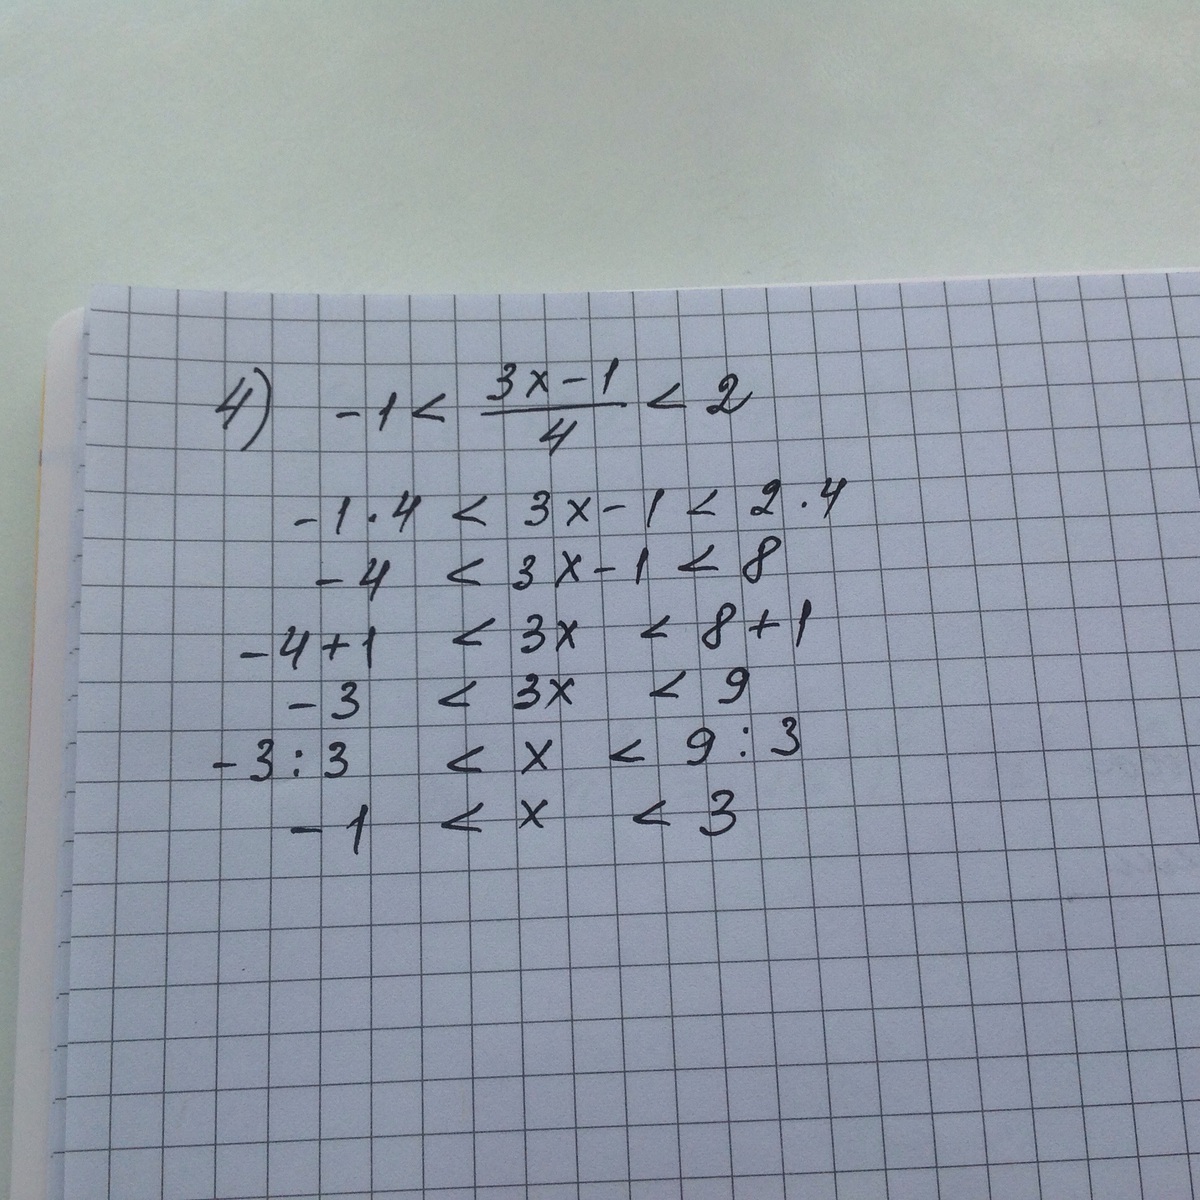 4) -1 < (3x-1)/4 < 2
-1·4 < 3x-1 < 2·4
-4 < 3x-1 < 8
-4+1 < 3x < 8+1
-3 < 3x < 9
-3:3 < x < 9:3
-1 < x < 3